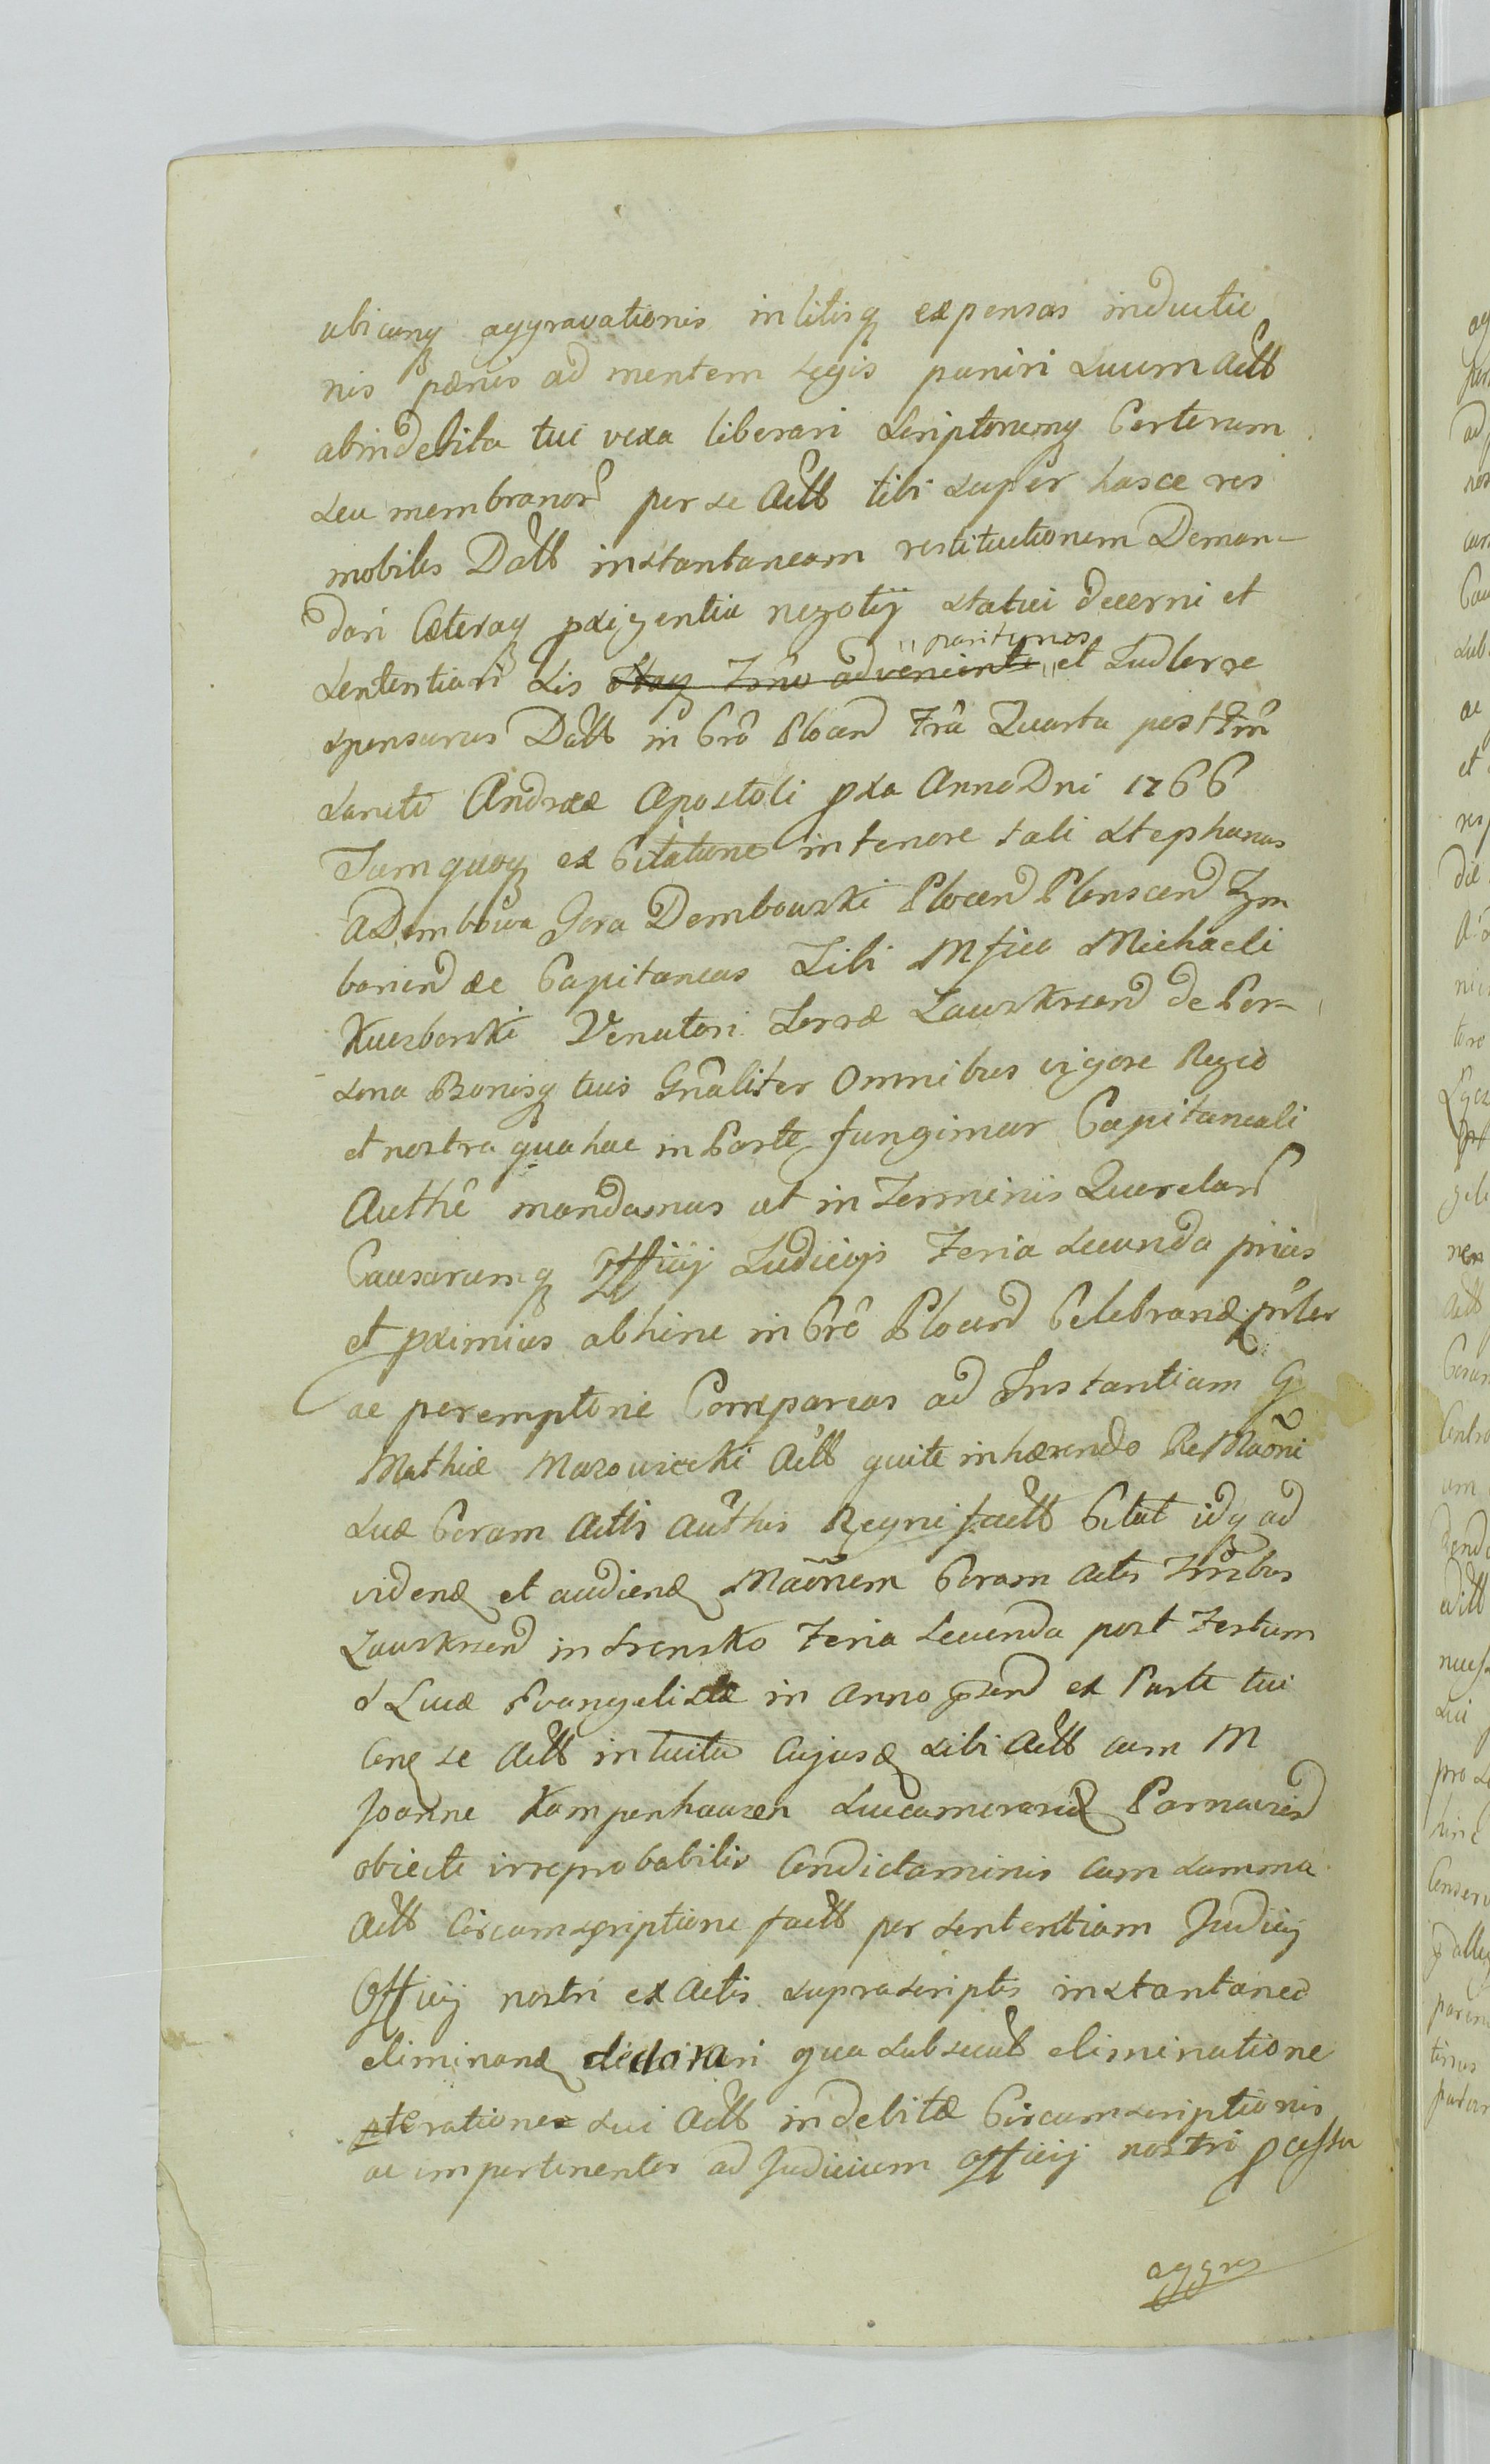 ubicunq aggravationis inlitisq expensas inductio
nis pænis ad mentem Legis puniri Suum Actt
abindebita tui vexa liberari Scriptorumq Carterum
seu membranor per se Actt tibi super hasce res
mobiles Datt instantaneam restitutionem Deman-
dari Cæteraq pxigentia negotij statui decerni et
Sententiari Sis Staq Tmo adveniente et Judterre
paritunos
sponsurus Datt in Cro Plocen Fra Quarta post Fm
Sancti Andreæ Apostoli pxa Anno Dni 1766
Tum quoq ex Citatione in tenore tali Stephanus
A Dembowa Gora Dembowski Plocen Plonscen Zyn
barien ac Capitaneus Tibi Mfico Michaeli
Kuczborski Venatori Terræ Zawskrzen de Per-
sona Bonisq tuis Gnaliter Omnibus vigore Regio
et nostra qua hac in Parte fungimur Capitaneali
Authe mandamus ut in Terminis Querelar
Causarumq Officij Judicijs Feria Secunda prius
et pximius abhinc in Cro Plocen Celebrand pnler
ac peremptorie Compareas ad Instantiam G
Mathiæ Mazowiecki Actt quite inhærendo ReMaoni
suæ Coram Actis Authis Regni factt Citat idq ad
videnđ et audienđ Maõnem Coram Actis Tmbus
Zawskrzen in Srensko Feria Secunda post Festum
S Lucæ Evangelistæ in Anno psen ex Parte tui
Conq se Actt intuitu Cujusđ Sibi Actt cum M
Joanne Kampenhauzen Succamerarid Parnawien
objecti irreprobabilis Condictaminis cum Summa
Actt Circumscriptione factt per Sententiam Judicij
Officij nostri ex Actis suprascriptis instantanee
eliminand declarari qua subsecut eliminatione
pteratione sui Actt indebitæ Circumscriptionis
ac impertinenter ad Judicium Officij nostri pcessu
aggra